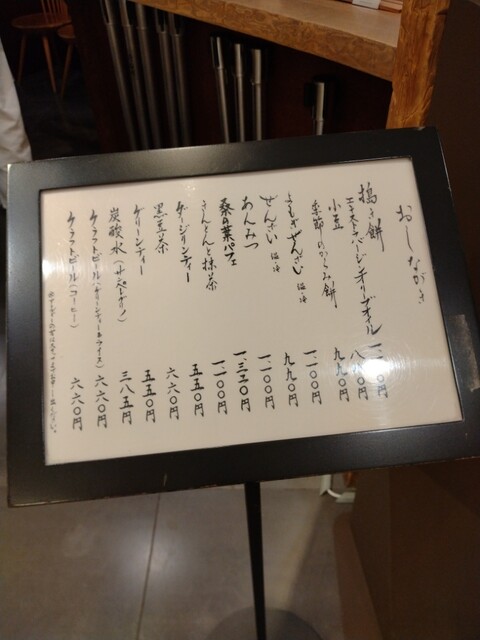 おしながき
搗き餅
エキストラバージンオリーブオイル 一一〇〇円
小豆 八八〇円
季節のからみ餅 九九〇円
よもぎぜんざい 温・冷 一一〇〇円
ぜんざい 温・冷 九九〇円
あんみつ 一一〇〇円
桑の葉パフェ 一三二〇円
きんとんと抹茶 一一〇〇円
ダージリンティー 五五〇円
黒豆茶 六六〇円
グリーンティー 五五〇円
炭酸水(サンペレグリノ) 三八五円
クラフトビール(グリーンティー&ライス) 六六〇円
クラフトビール(コーヒー) 六六〇円